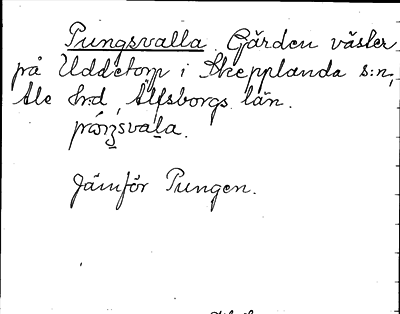 Pungsvalla. Gården väster
på Uddetorp i Skepplanda s:n,
Ale Hrd, Älfsborgs län.
Jämför Pungen.